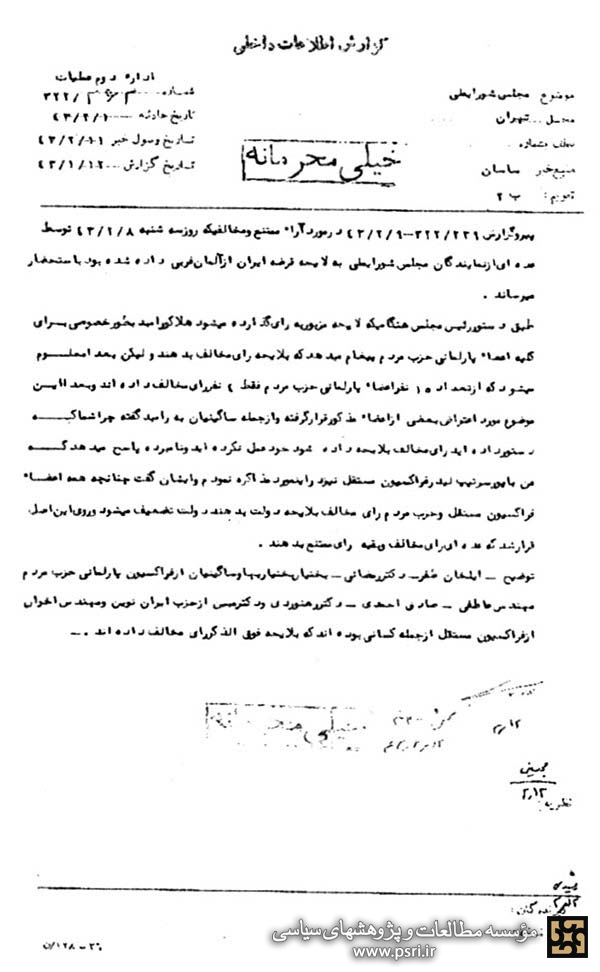 گزارش اطلاعات داخلی
اداره دوم عملیات
موضوع مجلس شورایملی
شماره ۳۲۲/
محل تهران
تاریخ حادثه ۴۳/۲/۱۰
عطف بشماره
تاریخ وصول خبر ۴۳/۲/۱۱
منبع خبر ساسان
تاریخ گزارش ۴۳/۲/۱۲
تقویم: ب ۲
خیلی محرمانه
پیروگزارش ۳۲۲/۲۳۹-۴۳/۲/۹ در مورد آراء ممتنع و مخالفیکه روز سه شنبه ۴۳/۲/۸ توسط
عده ای از نمایندگان مجلس شورایملی به لایحه قرضه ایران از آلمان غربی داده شده بود باستحضار
میرساند .
طبق دستور رئیس مجلس هنگامیکه لایحه مزبور به رای گذارده میشود هلاکو رامبد بطور خصوصی برای
کلیه اعضاء پارلمانی حزب مردم پیغام میدهد که بلایحه رای مخالف بدهند ولیکن بعدا معلوم
میشود که از تعداد ۱۵ نفر اعضاء پارلمانی حزب مردم فقط ۴ نفر رای مخالف داده اند و بعدا این
موضوع مورد اعتراض بعضی از اعضاء مذکور قرار گرفته و از جمله ساگینیان به رامبد گفته چرا شما که
دستور داده اید رای مخالف بلایحه داده شود خود عمل نکرده اید و نامبرده پاسخ میدهد که
من با پورسرتیپ لیدر فراکسیون مستقل نیز در اینمورد مذاکره نمودم و ایشان گفت چنانچه همه اعضاء
فراکسیون مستقل و حزب مردم رای مخالف بلایحه دولت بدهند دولت تضعیف میشود و روی این اصل
قرار شد که عده ای رای مخالف و بقیه رای ممتنع بدهند .
توضیح - ایلخان ظفر - دکتر رمضانی - بختیار بختیاریها و ساگینیان از فراکسیون پارلمانی حزب مردم
مهندس عاطفی - صادق احمدی - دکتر رهنوردی و دکتر میس از حزب ایران نوین و مهندس اخوان
از فراکسیون مستقل از جمله کسانی بوده اند که بلایحه فوق الذکر رای مخالف داده اند .-
خیلی محرمانه
۲/۱۲
مبینی
۲/۱۲
نظریه:
مؤسسه مطالعات و پژوهشهای سیاسی
www.psri.ir